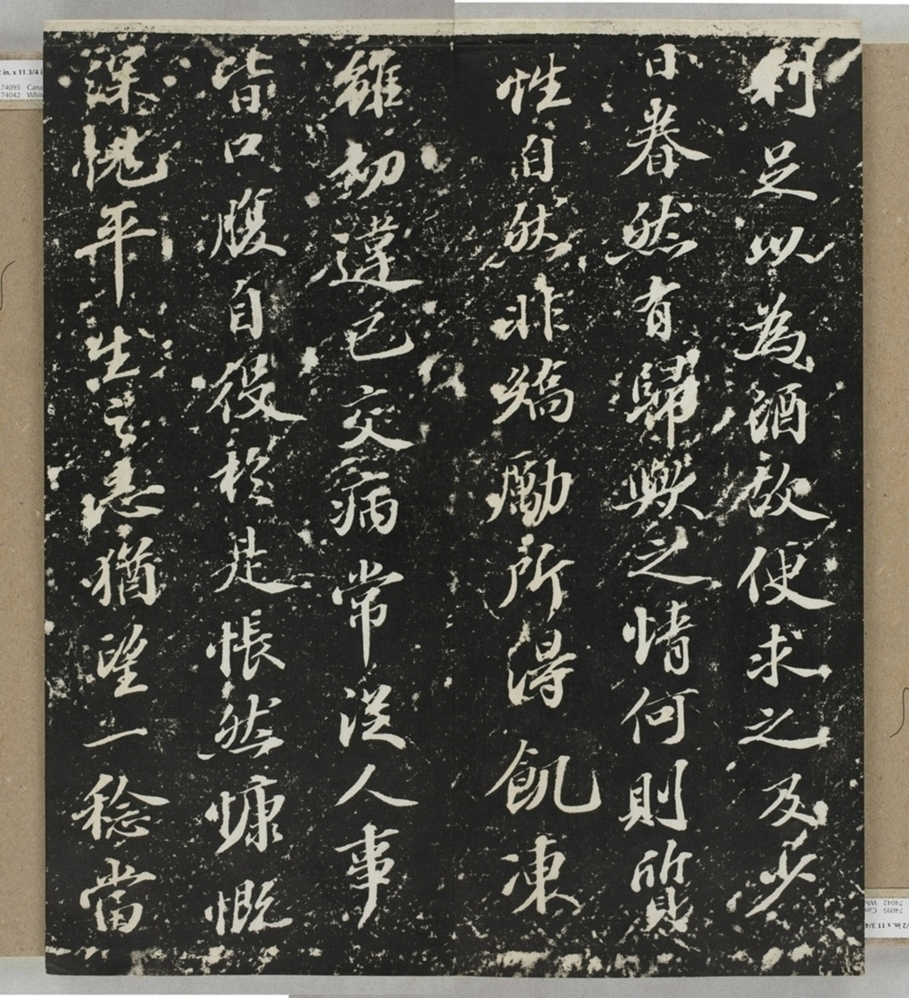 利足以為酒故便求之及少
日眷然有歸歟之情何則質
性自然非矯勵所得飢凍
雖切違己交病常從人事
皆口腹自役於是悵然慷慨
深愧平生之志猶望一稔當